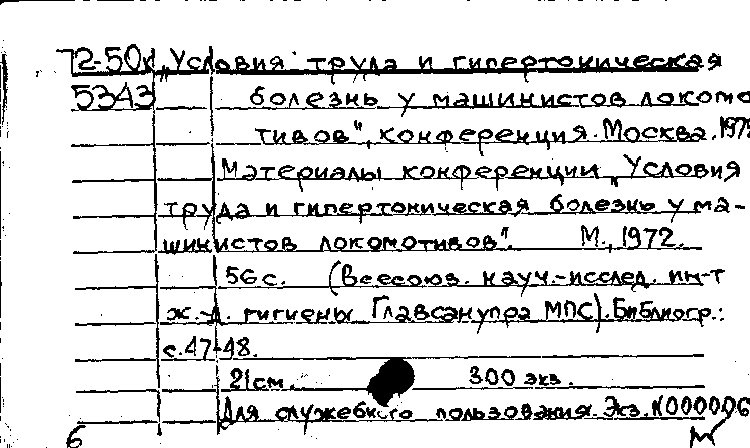 72-50к „Условия труда и гипертоническая
5343 болезнь у машинистов локомо
тивов", конференция. Москва. 1972
Материалы конференции „Условия
труда и гипертоническая болезнь у ма-
шинистов локомотивов". М., 1972.
56 с. (Всесоюз. науч.-исслед. ин-т
ж.-д. гигиены Главсанупра МПС). Библиогр.:
с. 47-48.
21 см. 300 экз.
Для служебного пользования. Экз. К000006
6